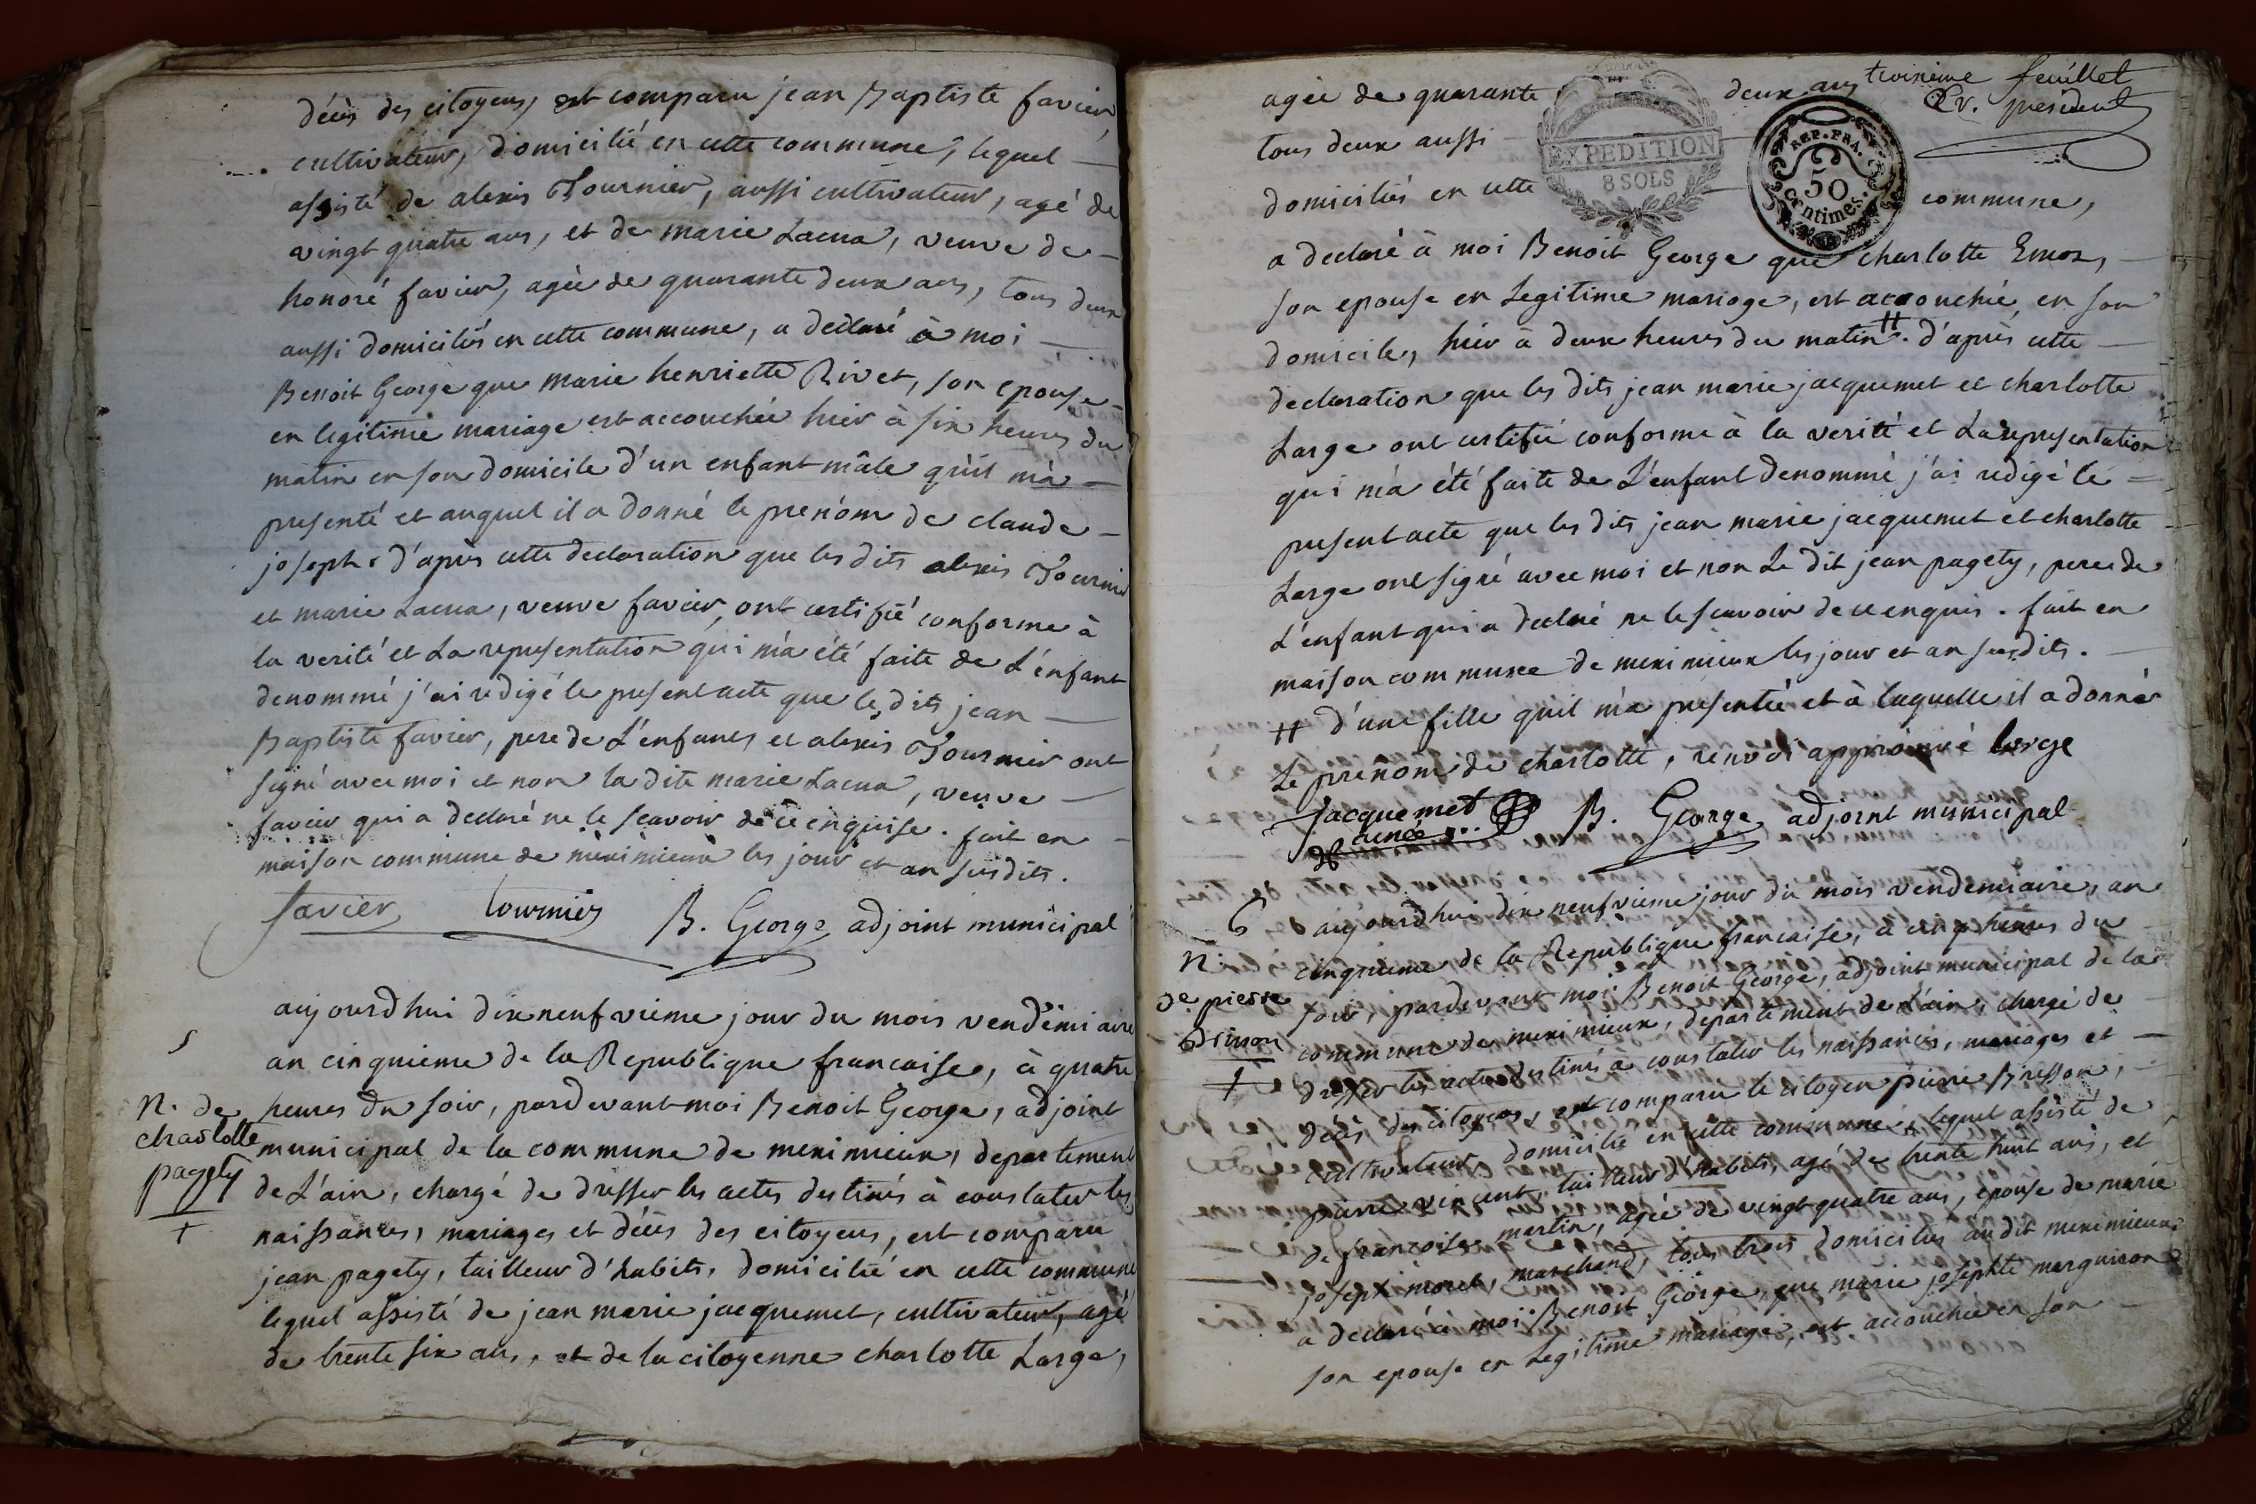 décès des citoyens, est comparu jean Baptiste favier,
cultivateur, domicilié en cette commune, lequel
assisté de alexis Tournier, aussi cultivateur, agé de
vingt quatre ans, et de marie Lacua, veuve de
honoré favier, agée de quarante deux ans, tous deux
aussi domiciliés en cette commune, a declaré à moi
Benoit George que marie henriette Rivet, son epouse
en legitime mariage est accouchée hier à six heures du
matin en son domicile d'un enfant mâle qu'il m'a
presenté et auquel il a donné le prenom de claude
joseph. d'après cette declaration que les dits alexis Tournier
et marie Lacua, veuve favier, ont certifié conforme à
la verité et La representation qui m'a été faite de L'enfant
denommé j'ai redigé le present acte que les dits jean
Baptiste favier, pere de L'enfant et alexis Tournier ont
signé avec moi et non la dite marie Lacua, veuve
favier qui a declaré ne le scavoir de ce enquise. fait en
maison commune de meximieux les jour et an susdits.
favier tournier B. George adjoint municipal
5
N. de
charlotte
pagety
+
aujourdhui dix neufvieme jour du mois vendémiaire
an cinquieme de la Republique francaise, à quatre
heures du soir, pardevant moi Benoit George, adjoint
municipal de la commune de meximieux, departement
de L'ain, chargé de dresser les actes destinés à constater les
naissances, mariages et décès des citoyens, est comparu
jean pagety, tailleur d'habits, domicilié en cette commune
lequel assisté de jean marie jacquemet, cultivateur, agé
de trente six ans, et de la citoyenne charlotte Large,
troisieme feuillet
president
agée de quarante deux ans
tous deux aussi
EXPEDITION
8 SOLS
REP. FRA.
50
Centimes.
domiciliés en cette commune,
a declaré à moi Benoit George que charlotte
son epouse en Legitime mariage, est accouchée en son
domicile, hier à deux heures du matin ++. d'après cette
declaration que les dits jean marie jacquemet et charlotte
Large ont certifié conforme à la verité et La representation
qui m'a été faite de L'enfant denommé j'ai redigé le
present acte que les dits jean marie jacquemet et charlotte
Large ont signé avec moi et non Le dit jean pagety, pere de
L'enfant qui a declaré ne le scavoir de ce enquis. fait en
maison commune de meximieux les jour et an susdits.
++ d'une fille qu'il m'a presentée et à laquelle il a donné
Le prenom de charlotte, renvoi approuvé large
Jacquemet B. George adjoint municipal
ainé
6
N.
de pierre
Brison
+
aujourdhui dix neufvieme jour du mois vendemiaire, an
cinquieme de la Republique francaise, à cinq heures du
soir, pardevant moi Benoit George, adjoint municipal de la
commune de meximieux, departement de L'ain, chargé de
dresser les actes destinés à constater les naissances, mariages et
décès des citoyens, est comparu le citoyen pierre Bresson,
cultivateur, domicilié en cette commune, lequel assisté de
pierre vincent, tailleur d'habits, agé de trente huit ans, et
de francoise martin, agée de vingt quatre ans, epouse de marie
joseph moret, marchand, tous trois domiciliés au dit meximieux
a declaré à moi Benoit George, que marie josephte marguiron
son epouse en Legitime mariage, est accouchée en son